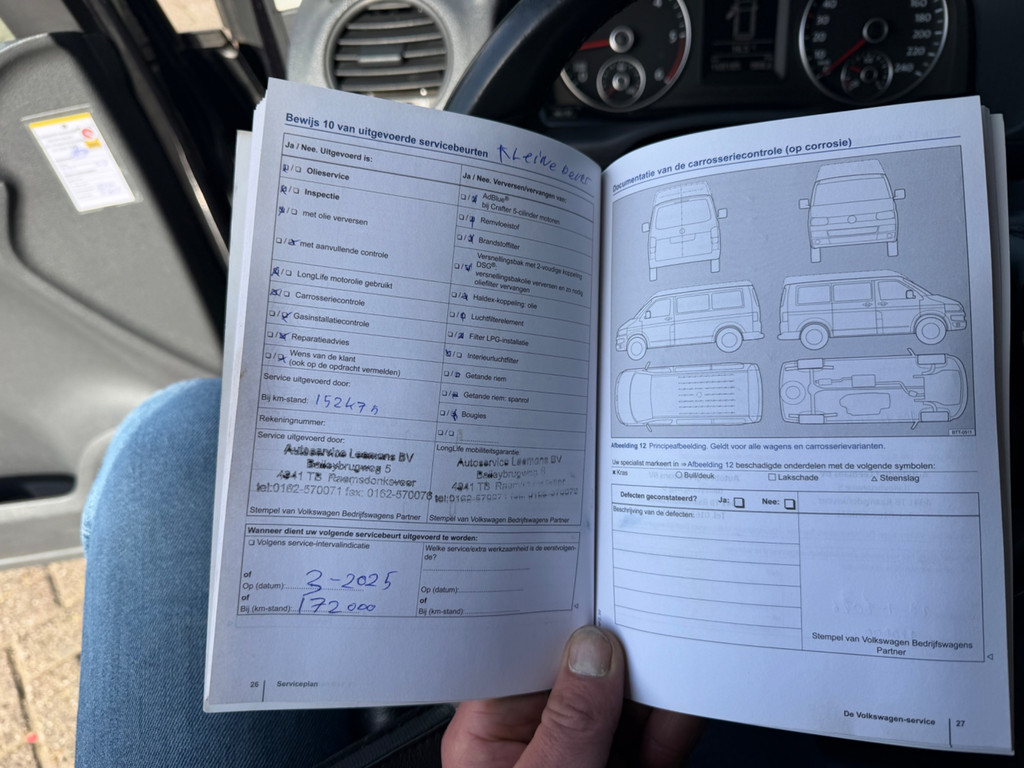 Bewijs 10 van uitgevoerde servicebeurten Kleine beurt
Ja / Nee. Uitgevoerd is:
Olieservice
Inspectie
met olie verversen
met aanvullende controle
LongLife motorolie gebruikt
Carrosseriecontrole
Gasinstallatiecontrole
Reparatieadvies
Wens van de klant
(ook op de opdracht vermelden)
Service uitgevoerd door:
Bij km-stand:
Rekeningnummer:
Service uitgevoerd door:
Autoservice Leemans BV
5
4941 TB Raamsdonksveer
tel:0162-570071 fax: 0162-570076
Stempel van Volkswagen Bedrijfswagens Partner
Ja / Nee. Verversen/vervangen van:
AdBlue®
bij Crafter 5-cilinder motoren
Remvloeistof
Brandstoffilter
Versnellingsbak met 2-voudige koppeling
DSG®:
versnellingsbakolie verversen en zo nodig
oliefilter vervangen
Haldex-koppeling: olie
Luchtfilterelement
Filter LPG-installatie
Interieurluchtfilter
Getande riem
Getande riem: spanrol
Bougies
LongLife mobiliteitsgarantie:
Autoservice Leemans BV
4941 TB Raamsdonksveer
tel:0162-570071 fax: 0162-570076
Stempel van Volkswagen Bedrijfswagens Partner
Wanneer dient uw volgende servicebeurt uitgevoerd te worden:
Volgens service-intervalindicatie
of
Op (datum): 3-2025
of
Bij (km-stand): 172000
Welke service/extra werkzaamheid is de eerstvolgen-
de?
Op (datum):
of
Bij (km-stand):
26 Serviceplan
Documentatie van de carrosseriecontrole (op corrosie)
Afbeelding 12 Principeafbeelding. Geldt voor alle wagens en carrosserievarianten.
Uw specialist markeert in ⇒ Afbeelding 12 beschadigde onderdelen met de volgende symbolen:
× Kras ○ Buil/deuk □ Lakschade △ Steenslag
Defecten geconstateerd? Ja: Nee:
Beschrijving van de defecten:
Stempel van Volkswagen Bedrijfswagens
Partner
De Volkswagen-service 27